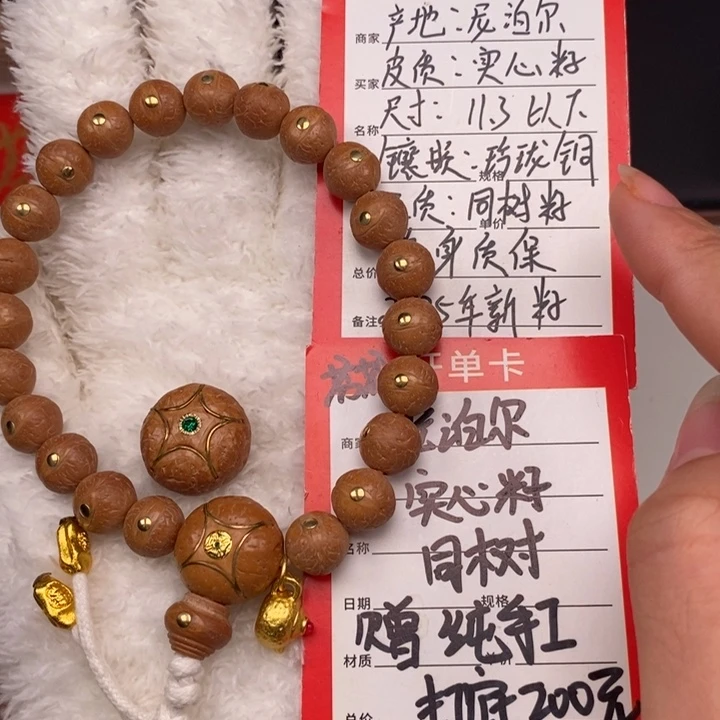 商家 产地:尼泊尔
买家 皮质:实心籽
名称 尺寸:11.3以下
规格 镶嵌:玲珑铜
单价 质:同树籽
总价 身质保
备注 5年新籽
开单卡
商家 泊尔
实心籽
名称 同树
日期 规格 赠纯手工
材质 单价
总价 打底200元